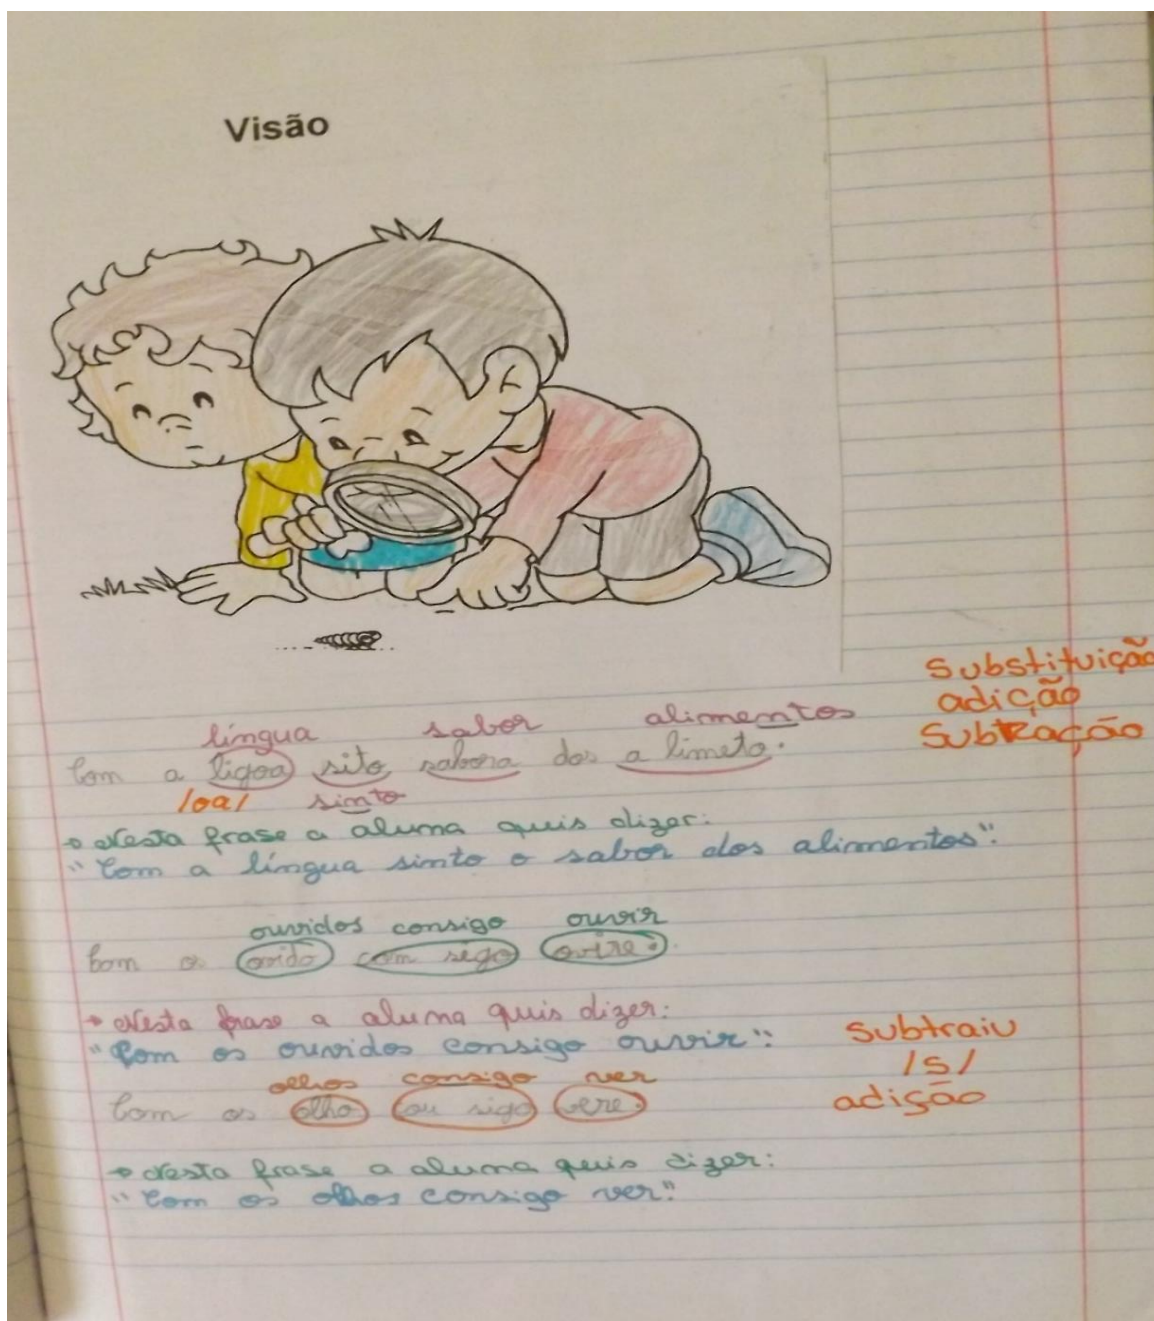 Visão
Substituição
adição
SubtRação
língua sabor alimentos
Com a ligoa sito sabora dos a limeto.
/oa/ sinto
Nesta frase a aluna quis dizer:
"Com a língua sinto o sabor dos alimentos".
ouvidos consigo ouvir
Com os ovido com sigo ovire.
Nesta frase a aluna quis dizer:
"Com os ouvidos consigo ouvir".
Subtraiu
/s/
adição
olhos consigo ver
Com os olho cou sigo vere.
Nesta frase a aluna quis dizer:
"Com os olhos consigo ver".